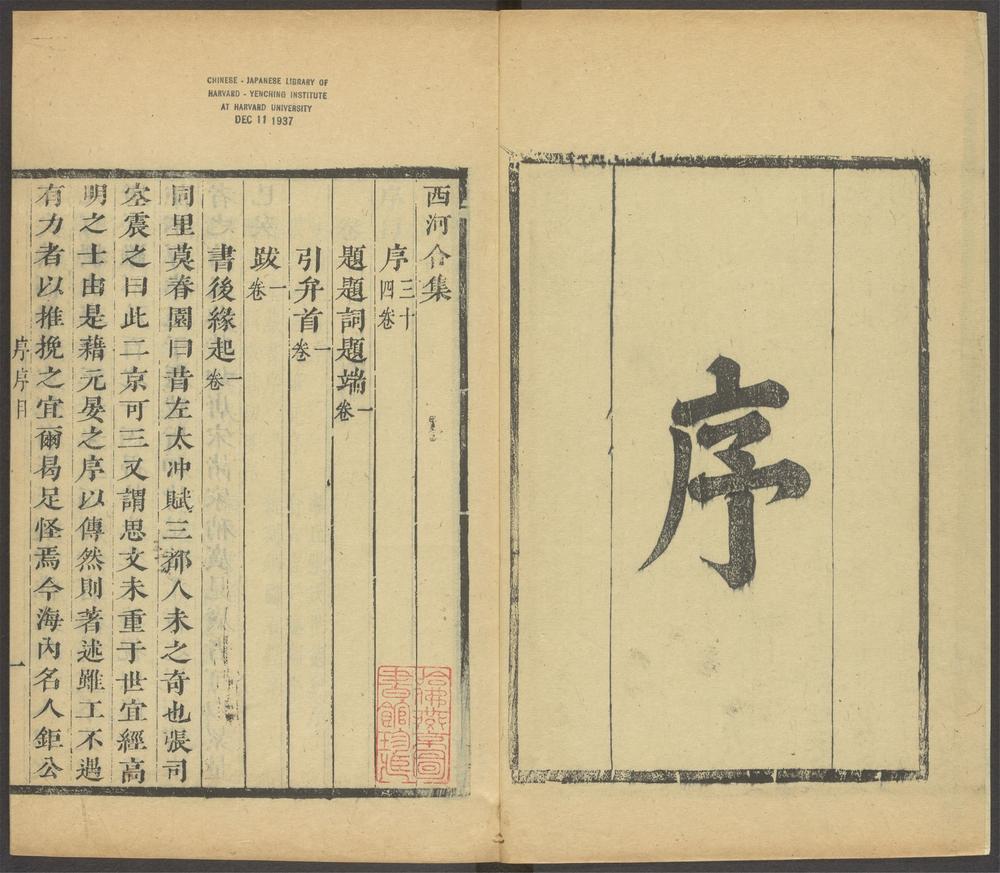 序
CHINESE - JAPANESE LIBRARY OF
HARVARD - YENCHING INSTITUTE
AT HARVARD UNIVERSITY
DEC 11 1937
西河合集
序三十四卷
題題詞題端一卷
引弁首一卷
跋一卷
書後緣起一卷
同里莫春園曰昔左太冲賦三都人未之奇也張司
空震之曰此二京可三又謂思文未重于世宜經高
明之士由是藉元晏之序以傳然則著述雖工不遇
有力者以推挽之宜爾曷足怪焉今海內名人鉅公
序序目
一
哈佛燕京圖書館珍藏